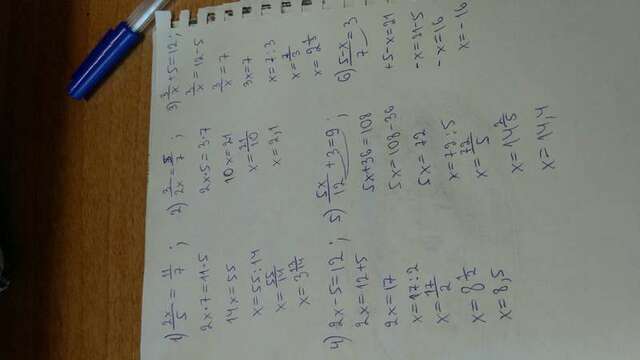 1) 2x/5 = 11/7 ;
2x·7=11·5
14x=55
x=55:14
x=55/14
x=3 13/14
2) 3/2x = 5/7 ;
2x·5=3·7
10x=21
x=21/10
x=2,1
3) 3/x+5=12;
3/x=12-5
3/x=7
3x=7
x=7:3
x=7/3
x=2 1/3
4) 2x-5=12;
2x=12+5
2x=17
x=17:2
x=17/2
x=8 1/2
x=8,5
5) 5x/12+3=9;
5x+36=108
5x=108-36
5x=72
x=72:5
x=72/5
x=14 2/5
x=14,4
6) 5-x/7=3
+5-x=21
-x=21-5
-x=16
x=-16